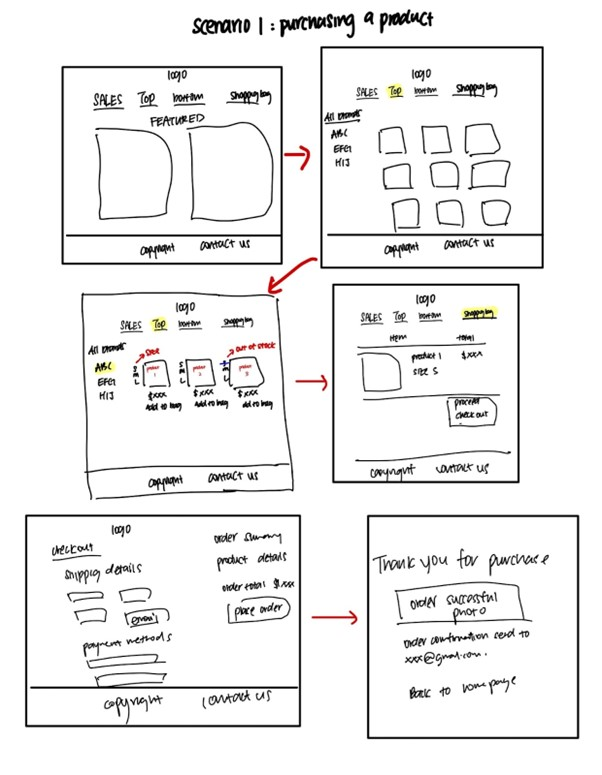 Scenario 1 : purchasing a product
logo
SALES Top bottom Shopping bag
FEATURED
copyright contact us
logo
SALES Top bottom Shopping bag
All brands
ABC
EFG
HIJ
copyright contact us
logo
SALES Top bottom Shopping bag
All brands
size
out of stock
ABC
EFG
HIJ
S M L
1
S M L
2
S M L
3
$xxx $xxx $xxx
Add to bag Add to bag Add to bag
copyright contact us
logo
SALES Top bottom Shopping bag
item total
product 1 $xxx
SIZE S
check out
copyright contact us
logo
checkout
order summary
product details
order total $xxx
place order
email
payment methods
copyright contact us
Thank you for purchase
order successful
photo
order confirmation send to
xxx@gmail.com.
Back to homepage